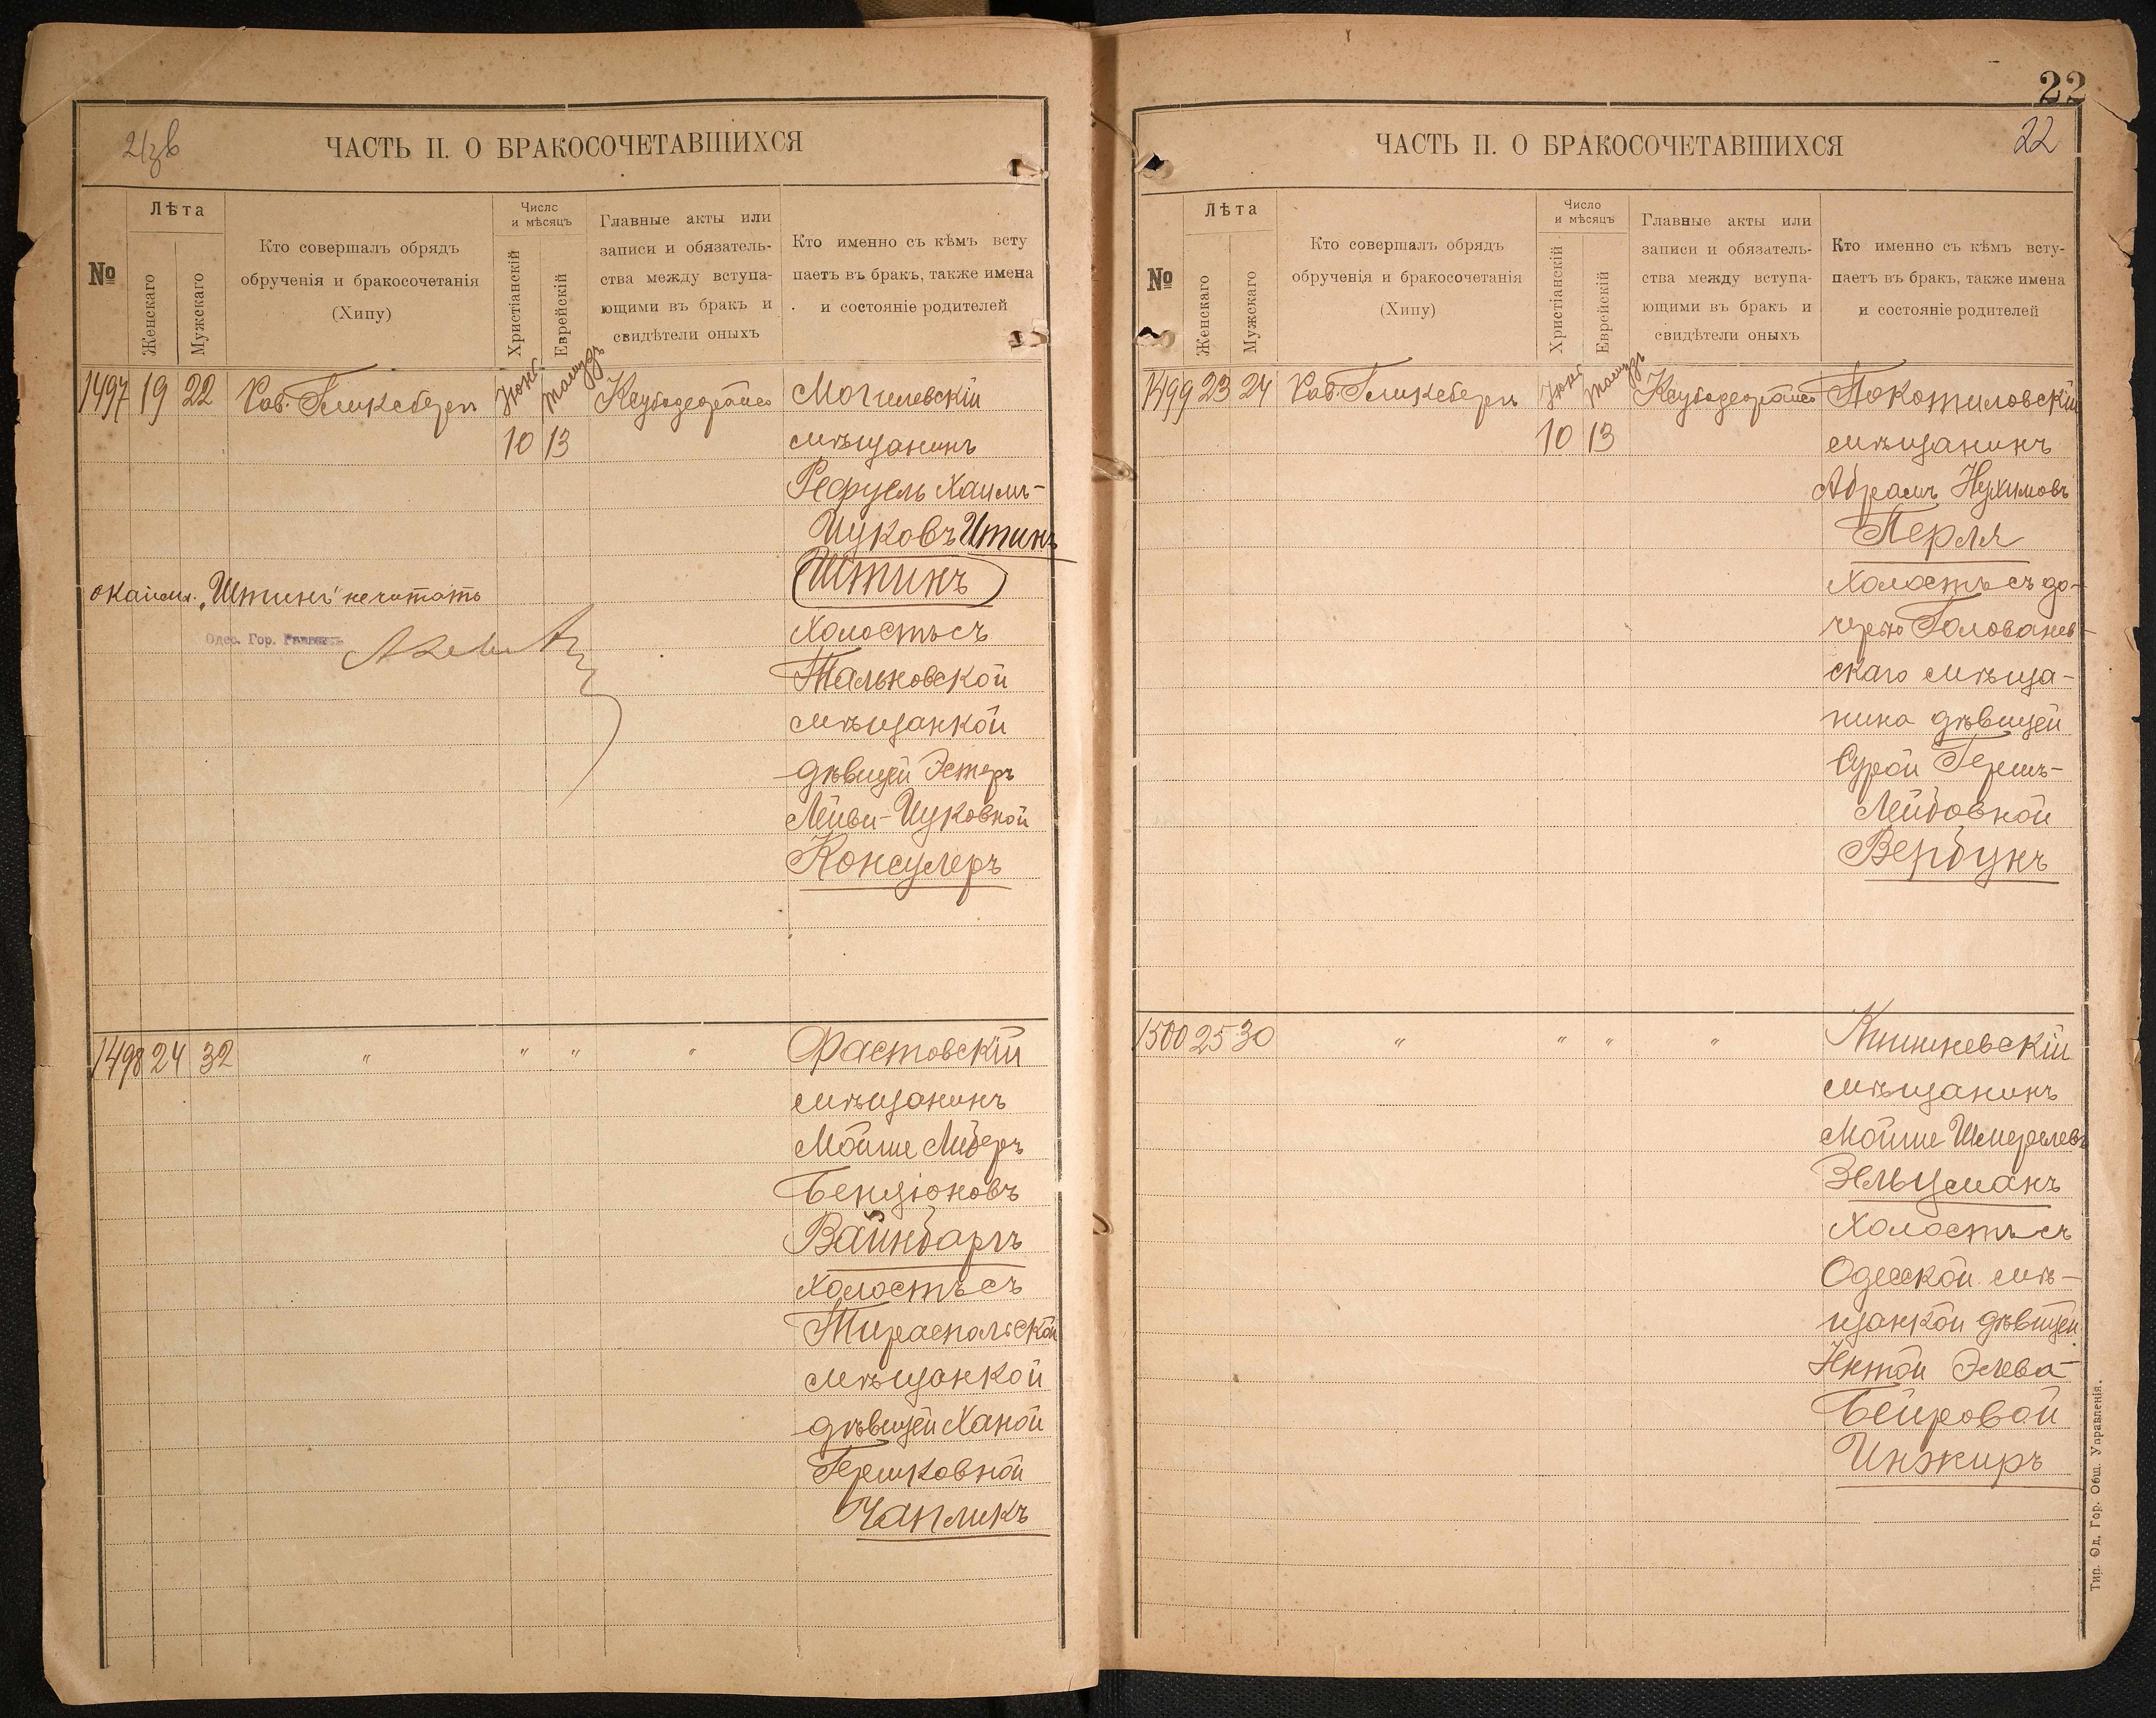 ЧАСТЬ II. О БРАКОСОЧЕТАВШИХСЯ
№
Лѣта
Женскаго
Мужскаго
Кто совершалъ обрядъ
обрученія и бракосочетанія
(Хипу)
Число
и мѣсяцъ
Христіанскій
Еврейскій
Главные акты или
записи и обязатель-
ства между вступа-
ющими въ бракъ и
свидѣтели оныхъ
Кто именно съ кѣмъ всту
паетъ въ бракъ, также имена
и состояніе родителей
1497 19 22 Рав. Гликсберг Могилевскій
10 13 мѣщанинъ
Рефуель Хаимъ-
Ицковъ Итинъ
Штинъ
окайм. „Штинъ" не читать
Одес. Гор.
Холостъ съ
Тальновской
мѣщанкой
дѣвицей Эстеръ
Лейви-Ицковной
Консулеръ
1498 24 32 " " " " Фастовскій
мѣщанинъ
Мойше Либеръ
Бенціоновъ
Вайнбаргъ
холостъ съ
Тираспольской
мѣщанкой
дѣвицей Ханой
Гершковной
Чапликъ
22
22
ЧАСТЬ II. О БРАКОСОЧЕТАВШИХСЯ
№
Лѣта
Женскаго
Мужскаго
Кто совершалъ обрядъ
обрученія и бракосочетанія
(Хипу)
Число
и мѣсяцъ
Христіанскій
Еврейскій
Главные акты или
записи и обязатель-
ства между вступа-
ющими въ бракъ и
свидѣтели оныхъ
Кто именно съ кѣмъ всту-
паетъ въ бракъ, также имена
и состояніе родителей
1499 23 24 Рав. Гликсберг Покотиловскій
10 13 мѣщанинъ
Абрамъ Нухимовъ
Перля
холостъ съ до-
черью Голованев-
скаго мѣща-
нина дѣвицей
Сурой Гершъ-
Лейбовной
Вербукъ
1500 25 30 " " " " Кишиневскій
мѣщанинъ
Мойше Шмерелевъ
Зельцманъ
холостъ съ
Одесской мѣ-
щанкой дѣвицей
Нѣтой Элева-
Бейровой
Инжиръ
Тип. Од. Гор. Общ. Управленія.